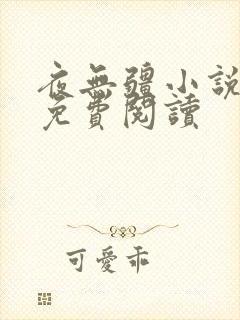 夜無疆小說
免費閱讀
可愛乖